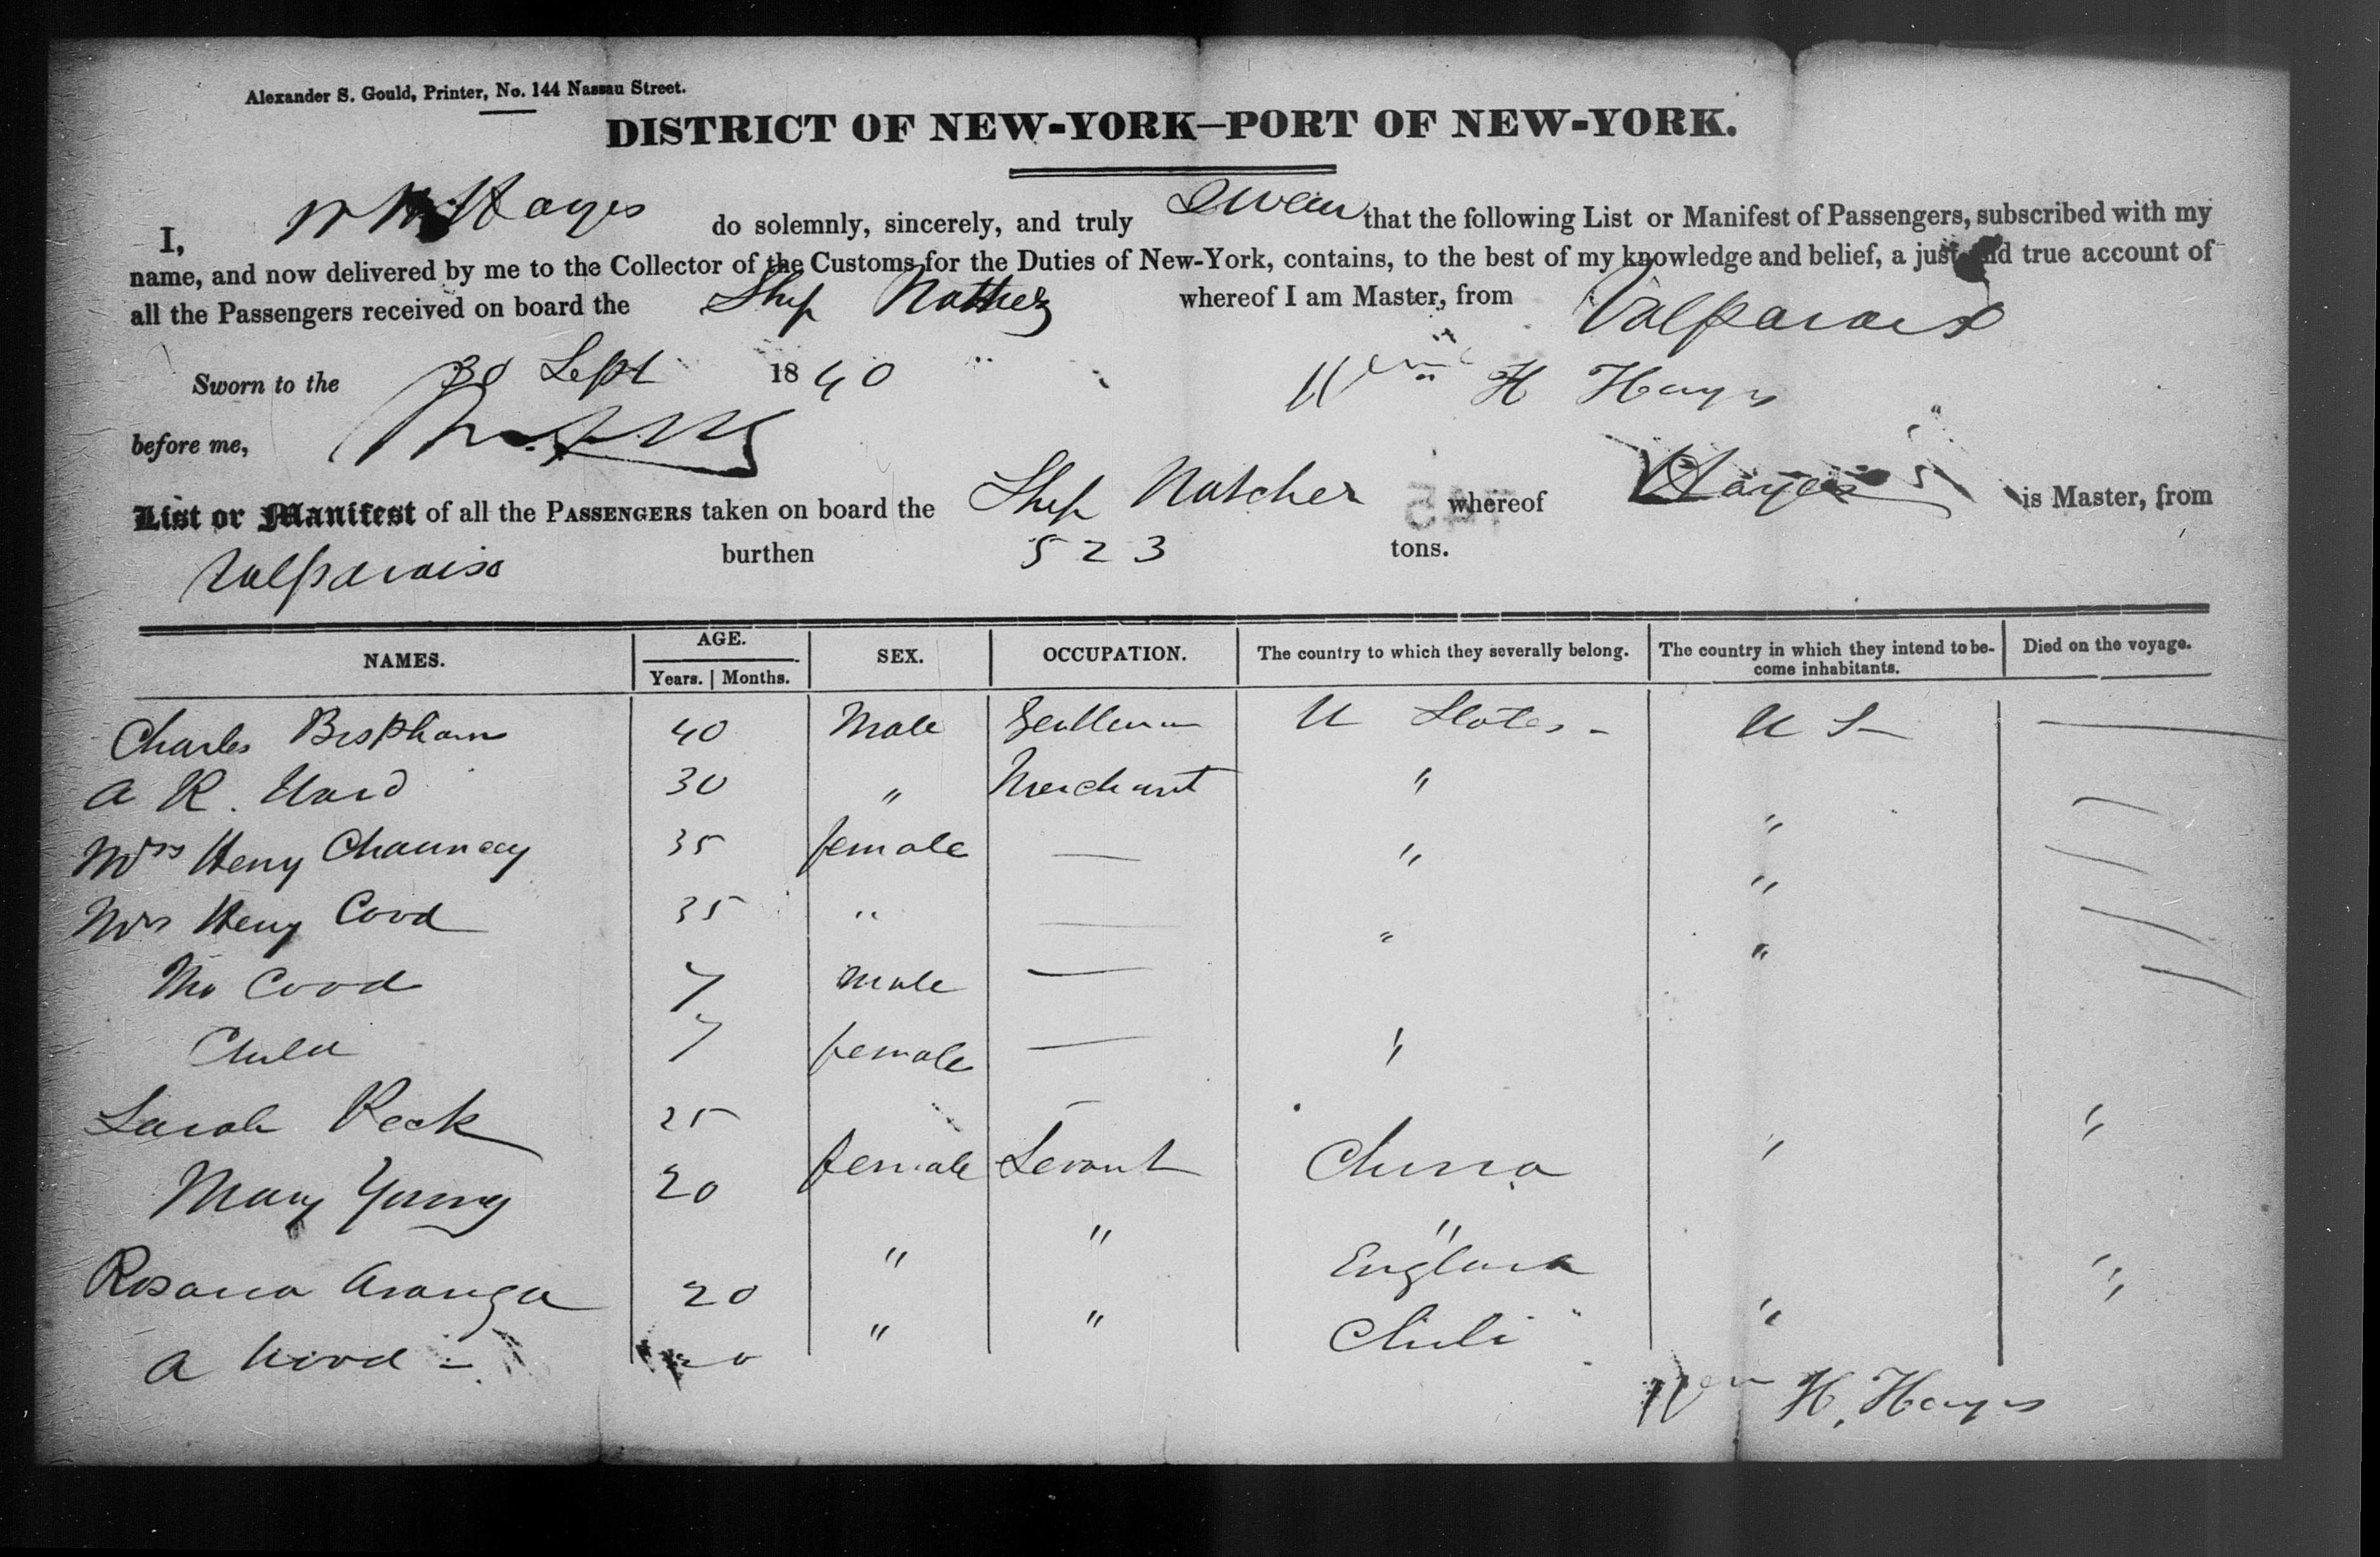 Alexander S. Gould, Printer, No. 144 Nassau Street.
DISTRICT OF NEW-YORK–PORT OF NEW-YORK.
I, Wm H Hayes do solemnly, sincerely, and truly Swear that the following List or Manifest of Passengers, subscribed with my
name, and now delivered by me to the Collector of the Customs for the Duties of New-York, contains, to the best of my knowledge and belief, a just and true account of
all the Passengers received on board the Ship Natchez whereof I am Master, from Valparaiso
Sworn to the 30 Sept 1840 Wm H Hayes
before me,
List or Manifest of all the PASSENGERS taken on board the Ship Natchez whereof Hayes is Master, from
Valparaiso burthen 523 tons.
NAMES. AGE. Years. Months. SEX. OCCUPATION. The country to which they severally belong. The country in which they intend to become inhabitants. Died on the voyage.
Charles Bispham 40 Male Gentleman U States - U S —
A R. Ward 30 " Merchant " "
Mrs Henry Chauncey 35 female — " "
Mrs Henry Cood 35 " — " "
Cood 7 male —
Child 7 female — "
Sarah Peck 25 - " "
Mary Young 20 female Servant China
" " "
Rosana Aranga 20 England "
A Wood - 20 " " Chili "
Wm H. Hayes